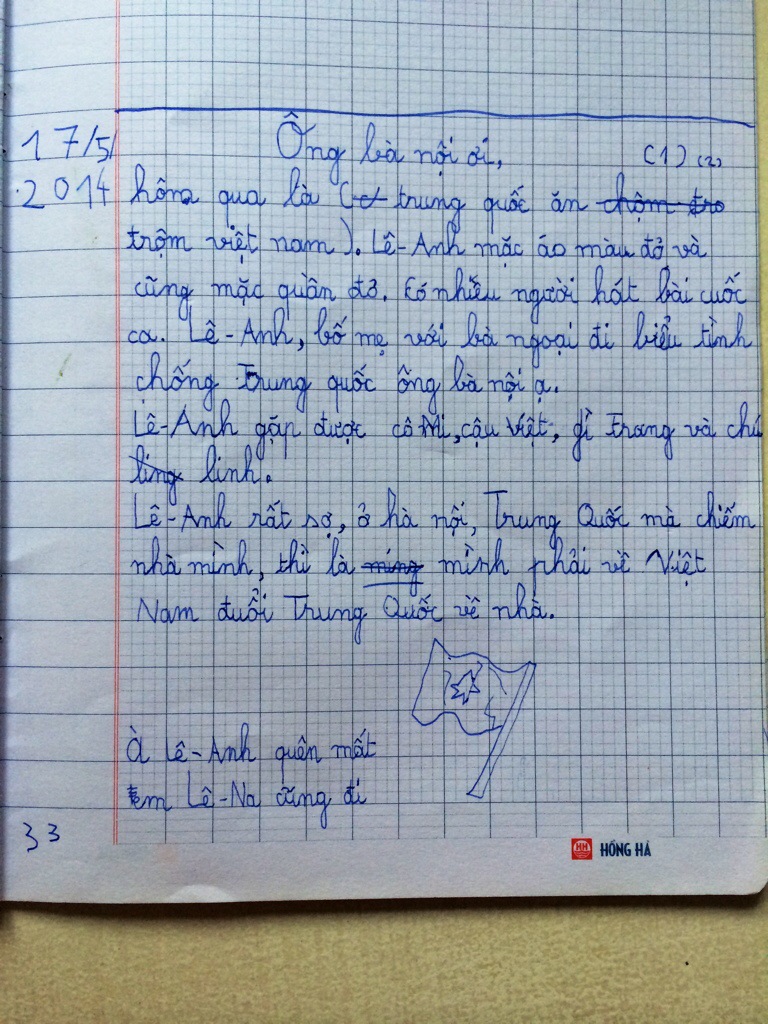 17/5/
2014
Ông bà nội ơi, (1) (2)
hôm qua là ( trung quốc ăn chộm tro
trộm việt nam). Lê-Anh mặc áo màu đỏ và
cũng mặc quần đỏ. Có nhiều người hát bài cuốc
ca. Lê-Anh, bố mẹ với bà ngoại đi biểu tình
chống Trung quốc ông bà nội ạ.
Lê-Anh gặp được cô Mi, cậu Việt, dì Trang và chú
ling linh.
Lê-Anh rất sợ, ở hà nội, Trung Quốc mà chiếm
nhà mình, thì là mình phải về Việt
Nam đuổi Trung Quốc về nhà.
À Lê-Anh quên mất
em Lê-Na cũng đi
33
HH HỒNG HÀ